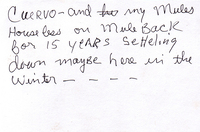 Cuervo - and my Mules
Houseless on Mule Back
for 15 years Setteling
down maybe here in the
Winter - - - -